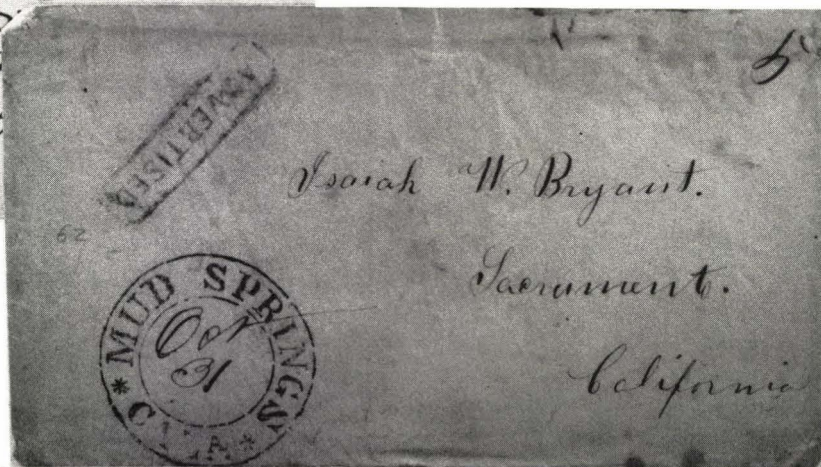 5
ADVERTISED
Isaiah W. Bryant.
Sacrament.
California
62
* MUD SPRINGS *
Oct
31
CALA